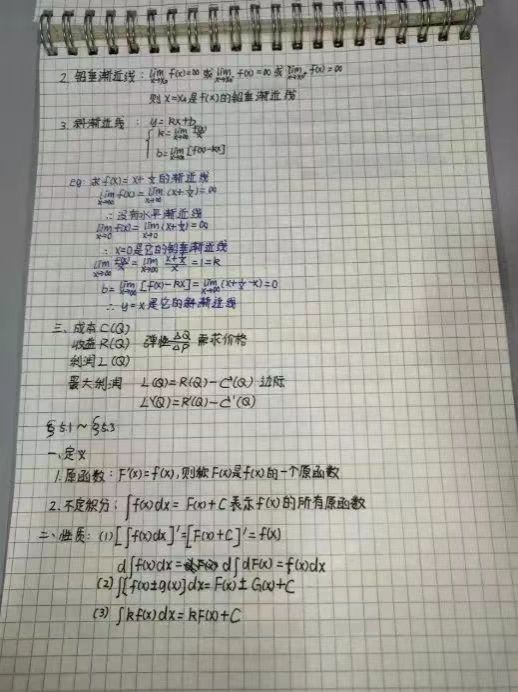 2. 铅垂渐近线: lim x→x₀ f(x)=∞ 或 lim x→x₀⁻ f(x)=∞ 或 lim x→x₀⁺ f(x)=∞
则 x=x₀ 是 f(x) 的铅垂渐近线
3. 斜渐近线: y=kx+b
k=lim x→∞ f(x)/x
b=lim x→∞ [f(x)-kx]
eg: 求 f(x)=x+1/x 的渐近线
lim x→∞ f(x)=lim x→∞ (x+1/x)=∞
∴ 没有水平渐近线
lim x→0 f(x)=lim x→0 (x+1/x)=∞
∴ x=0 是它的铅垂渐近线
lim x→∞ f(x)/x = lim x→∞ (x+1/x)/x =1=k
b=lim x→∞ [f(x)-kx]=lim x→∞ (x+1/x-x)=0
∴ y=x 是它的斜渐近线
三、成本 C(Q)
收益 R(Q) 弹性 ΔQ/ΔP 需求价格
利润 L(Q)
最大利润 L(Q)=R(Q)-C(Q) 边际
L'(Q)=R'(Q)-C'(Q)
§5.1~§5.3
一、定义
1. 原函数: F'(x)=f(x), 则称 F(x) 是 f(x) 的一个原函数
2. 不定积分: ∫f(x)dx = F(x)+C 表示 f(x) 的所有原函数
二、性质: (1) [∫f(x)dx]'=[F(x)+C]'=f(x)
d∫f(x)dx= d∫dF(x)=f(x)dx
(2) ∫[f(x)±g(x)]dx=F(x)±G(x)+C
(3) ∫kf(x)dx=kF(x)+C